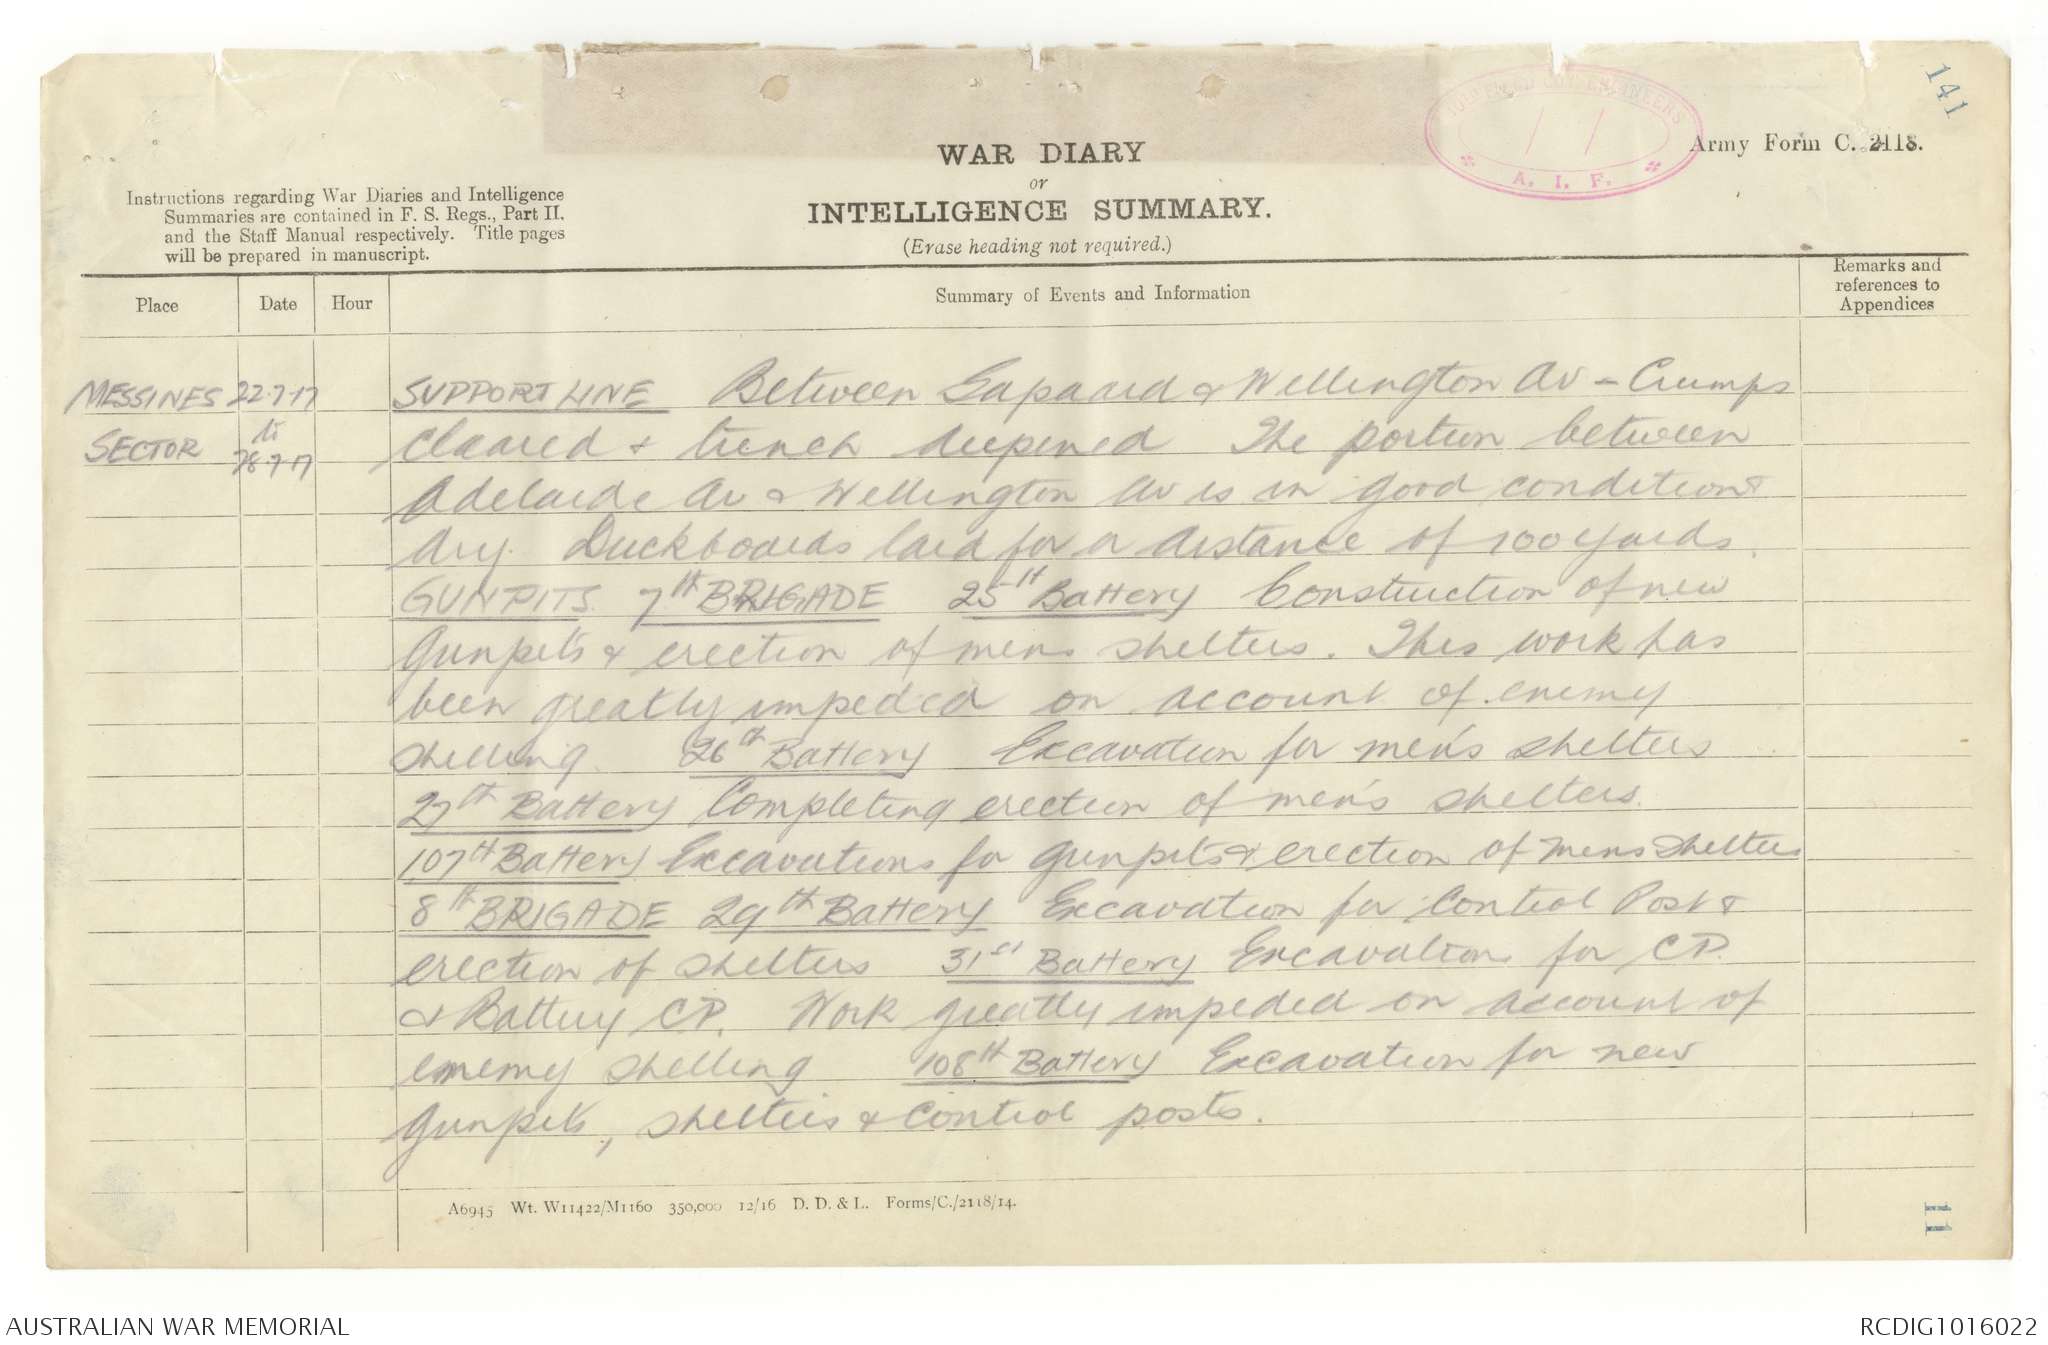 141
FIELD COY ENGINEERS
A. I. F.
Army Form C. 2118.
WAR DIARY
or
INTELLIGENCE SUMMARY.
(Erase heading not required.)
Instructions regarding War Diaries and Intelligence
Summaries are contained in F. S. Regs., Part II.
and the Staff Manual respectively. Title pages
will be prepared in manuscript.
Place
Date
Hour
Summary of Events and Information
Remarks and
references to
Appendices
MESSINES
SECTOR
22.7.17
to
28.7.17
SUPPORT LINE Between Gapaard & Wellington Av - Crumps
cleared & trench deepened The portion between
Adelaide Av & Wellington Av is in good condition &
dry. Duckboards laid for a distance of 100 yards.
GUNPITS. 7th BRIGADE 25th Battery Construction of new
Gunpits & erection of mens shelters. This work has
been greatly impeded on account of enemy
shelling. 26th Battery Excavation for men's shelters
27th Battery Completing erection of men's shelters.
107th Battery Excavations for gunpits & erection of mens shelters
8th BRIGADE 29th Battery Excavation for Control Post &
erection of shelters 31st Battery Excavations for C.P.
& Battery C.P. Work greatly impeded on account of
enemy shelling 108th Battery Excavation for new
gunpits, shelters & Control posts.
A6945 Wt. W11422/M1160 350,000 12/16 D. D. & L. Forms/C./2118/14.
11
AUSTRALIAN WAR MEMORIAL
RCDIG1016022